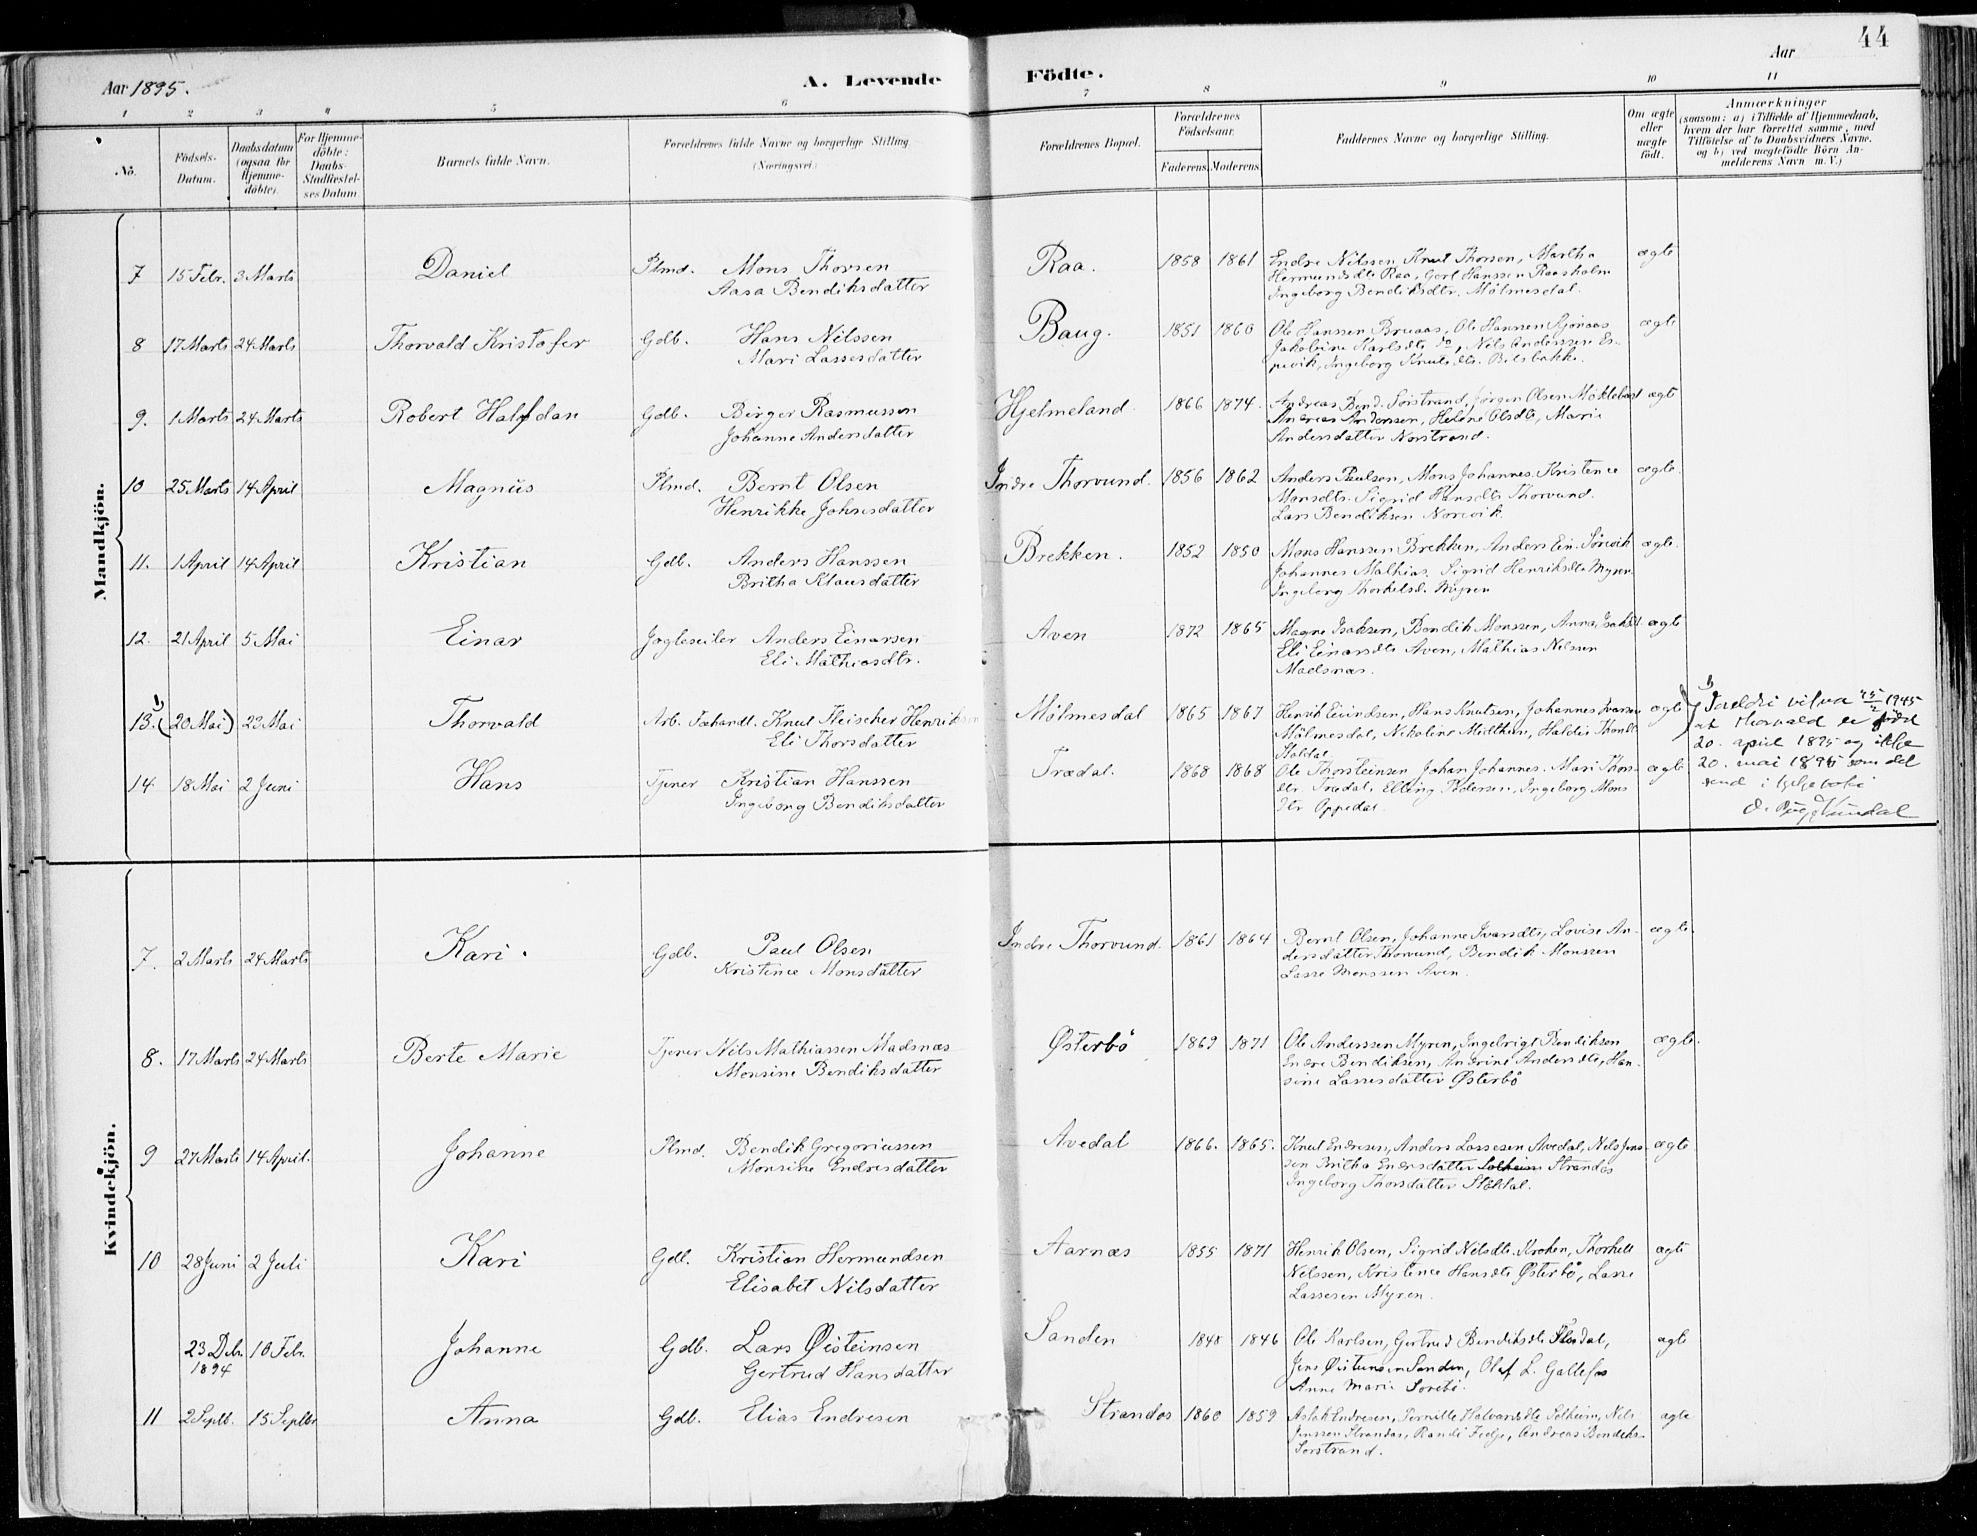 44
Aar 1895.
A. Levende Födte.
Aar
1 2 3 4 5 6 7 8 9 10 11
No.
Födsels-Datum.
Daabsdatum (ogsaa for Hjemme-döbte).
For Hjemme-döbte: Daabs-Stadfæstel-ses Datum
Barnets fulde Navn.
Forældrenes fulde Navne og borgerlige Stilling.
(Næringsvei.)
Forældrenes Bopæl.
Forældrenes Födselsaar.
Faderens. Moderens.
Faddernes Navne og borgerlige Stilling.
Om ægte eller uægte födt.
Anmærkninger
(saasom: a) i Tilfælde af Hjemmedaab,
hvem der har forrettet samme, med
Tilföielse af to Daabsvidners Navne.
og b) ved uægtefödte Börn An-
melderens Navn m. V.)
Mandkjön.
7 15 Febr. 3 Marts Daniel Plmd. Mons Thorsen Raa. 1858 1861 Endre Nilssen, Knut Thorsen, Martha ægte
Aasa Bendiksdatter Hermundsdtr Raa, Gert Hanssen Raasholm
Ingeborg Bendiksdtr. Mølmesdal.
8 17 Marts 24 Marts Thorvald Kristofer Gdb. Hans Nilssen Baug. 1851 1860 Ole Hanssen Bruaas, Ole Hannen ægte
Mari Lassesdatter Jakobine Karlsdtr do, Nils Anderssen Es-
pevik, Ingeborg Knutsdtr. Bilsbakke.
9. 1 Marts 24 Marts Robert Halfdan Gdb. Birger Rasmussen Hjelmeland. 1866 1874. Andreas Bend. Sørstrand, Jørgen Olsen ægte
Johanne Andersdatter Andreas Anderssen, Helene Olsdtr, Marie
Andersdatter Norstrand.
10 25 Marts 14 April Magnus Plmd. Bernt Olsen Indre Thorvund. 1856 1862 Anders Paulsen, Mons Johannes. Kristence ægte.
Henrikke Johnsdatter Monsdtr. Sigrid Hansdtr Thorvund.
Lars Bendiksen Norevik.
11. 1 April 14 April Kristian Gdb. Anders Hanssen Brekken. 1852 1850 Mons Hanssen Brekken, Anders Ein. Sørevik ægte.
Britha Klausdatter Johannes Mathias. Sigrid Henriksdtr Myren
Ingeborg Thorkelsd. Myren
12. 21 April 5 Mai Einar Jagteseiler Anders Einarsen Aven 1872 1865 Magne Isaksen, Bendik Monssen, Anna ægte
Eli Mathiasdtr. Eli Einarsdtr Aven, Mathias Nilssen
Madsnæs.
13. 1) (20 Mai) 23 Mai Thorvald Arb. Knut Fleischer Henriksen Mølmesdal 1865 1867 Henrik Eivindsen, Hans Knutsen, Johannes Ivarsen ægte
Eli Thorsdatter Mølmesdal, Nikoline Midthun,
14. 18 Mai 2 Juni Hans Tjener Kristian Hanssen Trædal. 1868 1868 Ole Thorsteinsen, Johan Johannes. Mari Thors- ægte
Ingeborg Bendiksdatter dtr. Trædal, Elling Pedersen, Ingeborg Mons
dtr Oppedal.
1) 1945
at Thorvald er født
20. april 1895 og ikke
20. mai 1895 som det
Kvindekjön.
7. 2 Marts 24 Marts Kari. Gdb. Paul Olsen Indre Thorvund. 1861 1864 Bernt Olsen, Johanne Ivarsdtr, Lovise An- ægte.
Kristence Monsdatter dersdatter Thorvund, Bendik Monssen
Lasse Monssen Aven.
8. 17 Marts 24 Marts Berte Marie Tjener Nils Mathiassen Madsnæs Østerbø 1869 1871 Ole Anderssen Myren, Ingebrigt Bendiksen ægte.
Monsine Bendiksdatter Endre Bendiksen, Andrine Andersdtr, Han-
sine Lassesdatter Østerbø
9 27 Marts 14 April. Johanne Plmd. Bendik Gregoriussen Avedal 1866. 1865. Knut Endresen, Anders Lassesen Avedal, Nils Jens- ægte
Monsine Endresdatter sen Britha Endresdatter Solheim Strandos
Ingeborg Thorsdatter Støldal.
10 28 Juni 2 Juli Kari Gdb. Kristian Hermundsen Aarnæs 1855 1871 Henrik Olsen, Sigrid Nilsdtr. Kroken, Thorkell ægte
Elisabet Nilsdatter Nilssen, Kristence Hansdtr Østerbø, Lasse
Lassesen Myren.
23 Debr. 1894 10 Febr. Johanne Gdb. Lars Øisteinsen Sanden 1848 1846 Ole Karlsen, Gertrud Bendiksdtr ægte
Gertrud Hansdatter Jens Øisteinsen Sanden, Olaf L. Gallefos
Anne Marie Sørebø.
11 2 Septb. 15 Septbr Anna Gdb. Elias Endresen Strandos 1860 1859 Aslak Endresen, Pernille Halvorsdtr Solheim, Nils ægte
Jenssen Strandos, Randi Fedje, Andreas Bendiks.
Sørstrand.